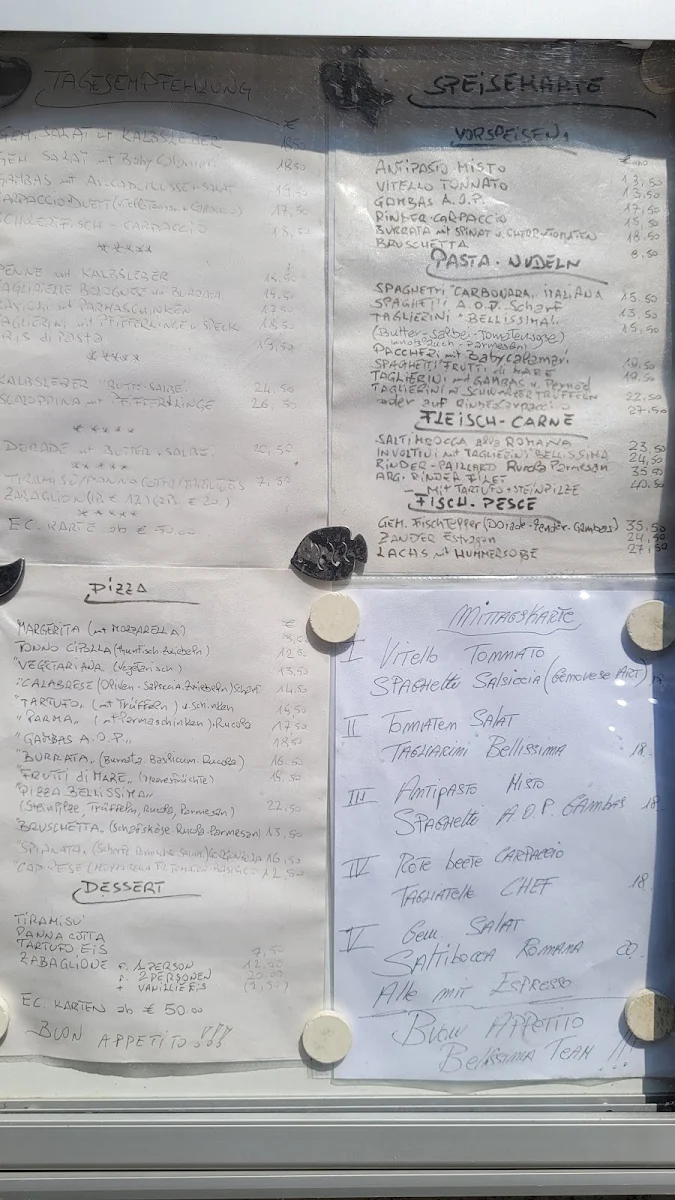 TAGESEMPFEHLUNG
€
GEM. SALAT mit KALBSLEBER 18,50
GEM SALAT mit Baby Calamari 18,50
GAMBAS mit
17,50
CARPACCIO
18,50
*****
PENNE mit KALBSLEBER
TAGLIATELLE BOLOGNESE
mit PARMASCHINKEN
TAGLIERINI mit PFIFFERLINGE u SPECK 18,50
di Pasta 19,50
*****
KALBSLEBER "BUTTER-SALBEI" 24,50
SCALOPPINA mit PFIFFERLINGE 26,50
*****
DORADE mit BUTTER + SALBEI
*****
TIRAMISU/PANNA COTTA/ 7,50
ZABAGLION (1P. € 12) (2P. € 20)
*****
EC. KARTE ab € 50.00
SPEISEKARTE
VORSPEISEN
ANTIPASTO MISTO 13,50
VITELLO TONNATO
GAMBAS A.O.P. 17,50
RINDER-CARPACCIO 15,50
BURRATA mit SPINAT u. CHERRYTOMATEN 18.50
BRUSCHETTA 8,50
PASTA-NUDELN
SPAGHETTI "CARBONARA" ITALIANA 15.50
SPAGHETTI A.O.P. Scharf 13,50
TAGLIERINI "BELLISSIMA" 15,50
(Butter-Salbei-Tomatensose)
Knoblauch-Parmesan)
PACCHERI mit Babycalamari
SPAGHETTI FRUTTI di MARE 19.50
TAGLIERINI mit GAMBAS u. Pernod
TAGLIERINI u SCHWARZER TRÜFFELN 22,50
oder auf Rindercarpaccio 27,50
FLEISCH-CARNE
SALTIMBOCCA alla ROMANA 23,50
INVOLTINI mit TAGLIERINI BELLISSIMA 24,50
RINDER-PAILLARD Rucola Parmesan 35,50
ARG. RINDER FILET
- MIT TARTUFO + STEINPILZE 40.50
FISCH-PESCE
GEM. FISCHTELLER (Dorade-Zander-Gambas) 35,50
ZANDER Estragon 24,50
LACHS mit HUMMERSOßE 27,50
PIZZA
€
MARGERITA (mit MOZZARELLA)
TONNO CIPOLLA (Thunfisch Zwiebeln) 12,50
"VEGETARIANA (Vegetarisch) 13,50
"CALABRESE (Oliven-Salsiccia.Zwiebeln) Scharf 14,50
"TARTUFO" (mit Trüffeln) u. Schinken 16,50
"PARMA" (mit Parmaschinken).Rucola 17,50
"GAMBAS A.O.P." 18,50
"BURRATA" (Burrata. Basilicum. Rucola) 16.50
"FRUTTI di MARE" (Meeresfrüchte) 15.50
"PIZZA BELLISSIMA"
(Steinpilze, Trüffeln, Rucola, Parmesan) 22,50
"BRUSCHETTA" (Schafskäse Rucola Parmesan) 13,50
"SPIANATA" GORGONZOLA 16,50
"CAPRESE 12,50
DESSERT
TIRAMISU'
PANNA COTTA
TARTUFO EIS 7,50
ZABAGLIONE F. 1 PERSON 12.50
F. 2 PERSONEN 20.00
+ VANILLIE EIS (2,50)
EC. KARTEN ab € 50.00
BUON APPETITO!!!
MITTAGSKARTE
I Vitello TONNATO
SPAGHETTI SALSICCIA (Genovese ART)
II TOMATEN SALAT
TAGLIARINI BELLISSIMA 18.
III ANTIPASTO MISTO
SPAGHETTI A.O.P. GAMBAS 18.
IV ROTE BEETE CARPACCIO
TAGLIATELLE CHEF 18.
V Gem. SALAT
SALTIBOCCA ROMANA 20.
Alle mit ESPRESSO
BUON APPETITO
BELLISSIMA TEAM !!!